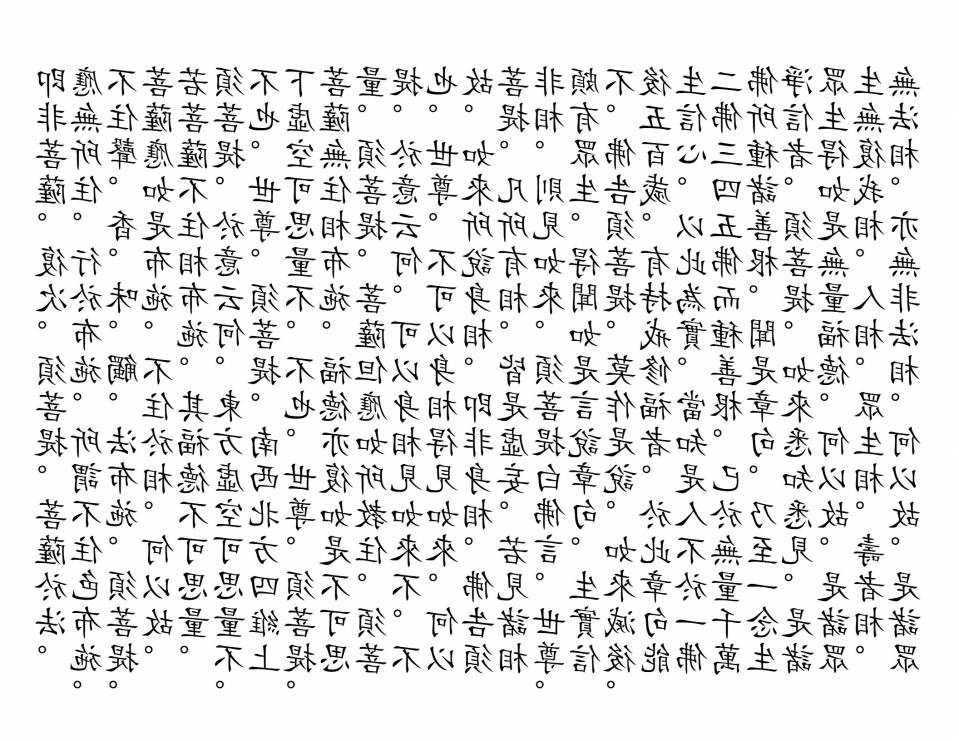 即非菩薩。復次。須菩提。菩薩於法。
應無所住。行於布施。所謂不住色布施。
不住聲。香。味。觸。法布施。須菩提。
菩薩應如是布施。不住於相。何以故。
若菩薩不住相布施。其福德不可思量。
須菩提。於意云何。東方虛空可思量不。
不也。世尊。須菩提。南西北方四維上
下虛空可思量不。不也。世尊。須菩提。
菩薩無住相布施。福德亦復如是不可思
量。須菩提。菩薩但應如所教住。須菩
提。於意云何。可以身相見如來不。不
也。世尊。不可以身相得見如來。何以
故。如來所說身相。即非身相。佛告須
菩提。凡所有相。皆是虛妄。若見諸相
非相。則見如來。須菩提白佛言。世尊。
頗有眾生得聞如是言說章句。生實信
不。佛告須菩提。莫作是說。如來滅後。
後五百歲。有持戒修福者。於此章句能
生信心。以此為實。當知是人不於一佛
二佛三四五佛而種善根。已於無量千萬
佛所種諸善根。聞是章句。乃至一念生
淨信者。須菩提。如來悉知悉見。是諸
眾生得如是無量福德。何以故。是諸眾
生無復我相。人相。眾生相。壽者相。
無法相。亦無非法相。何以故。是諸眾